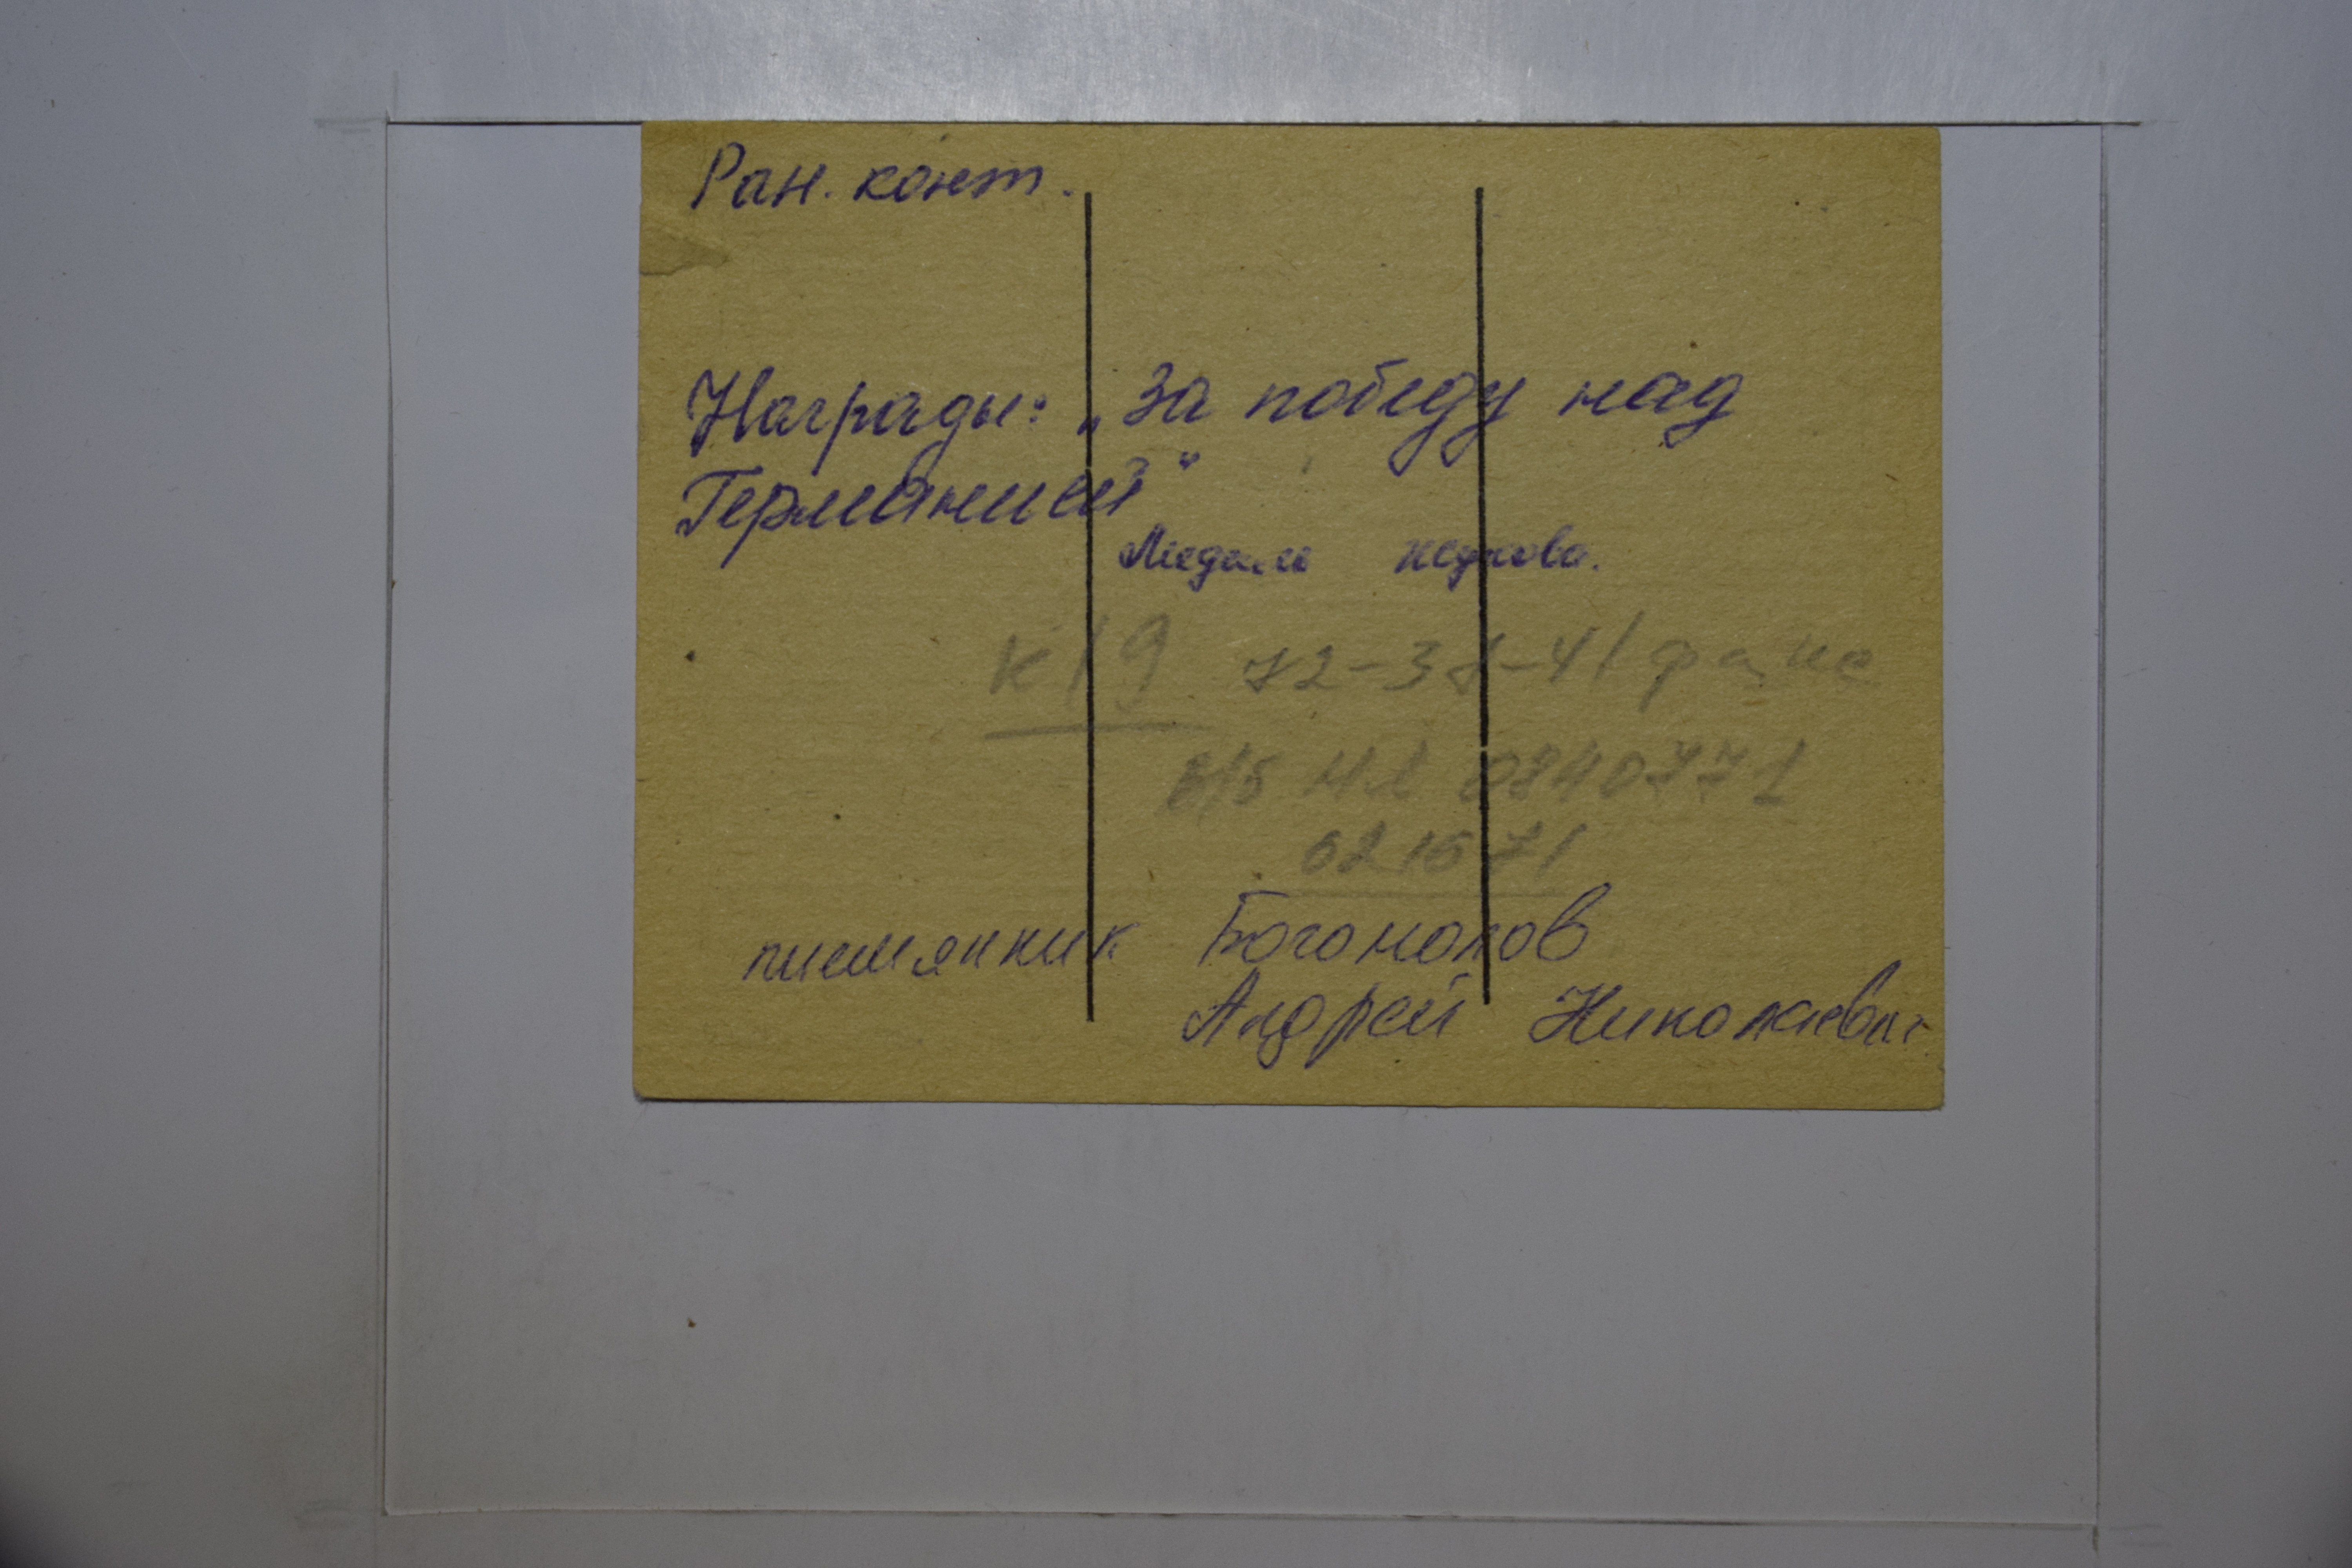 Ран. конт.
Награды: „За победу над
Германией"
Медаль Жукова.
К/9 72-31-41
0840771
621571
писмянник Богомолов
Андрей Николаевич